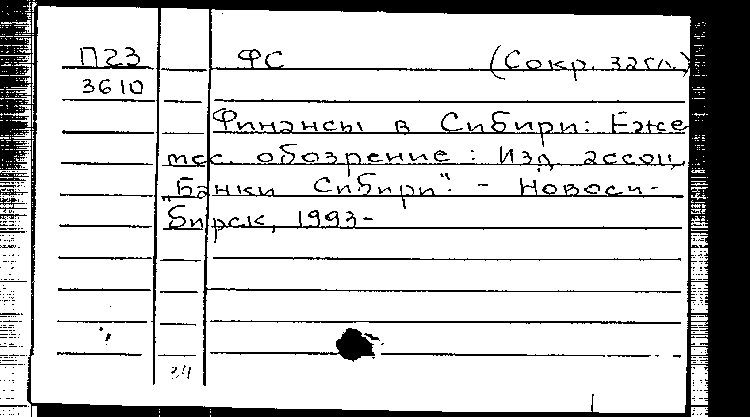 П23 ФС (Сокр. загл.)
3610
Финансы в Сибири: Еже
мес. обозрение: Изд. ассоц.
„Банки Сибири". - Новоси-
бирск, 1993-
34